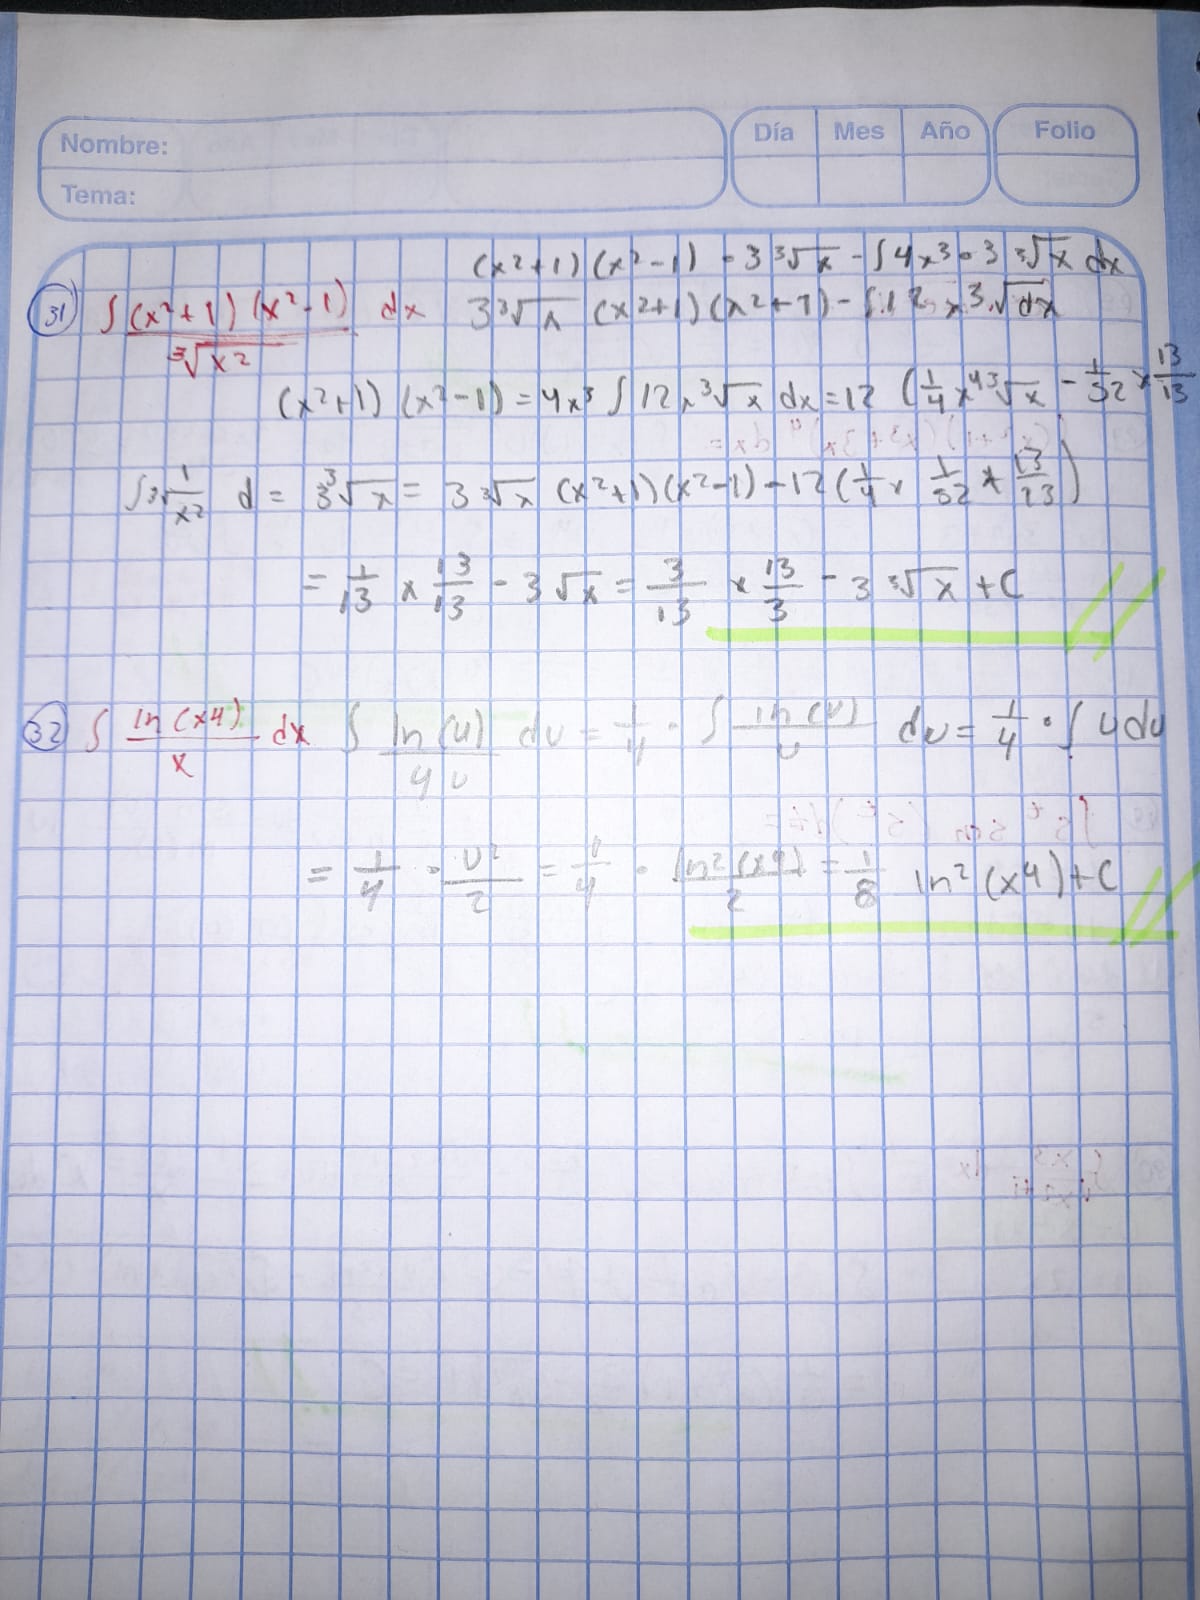 Nombre:
Tema:
Día Mes Año
Folio
(x²+1) (x²-1) · 3 ³√x - ∫ 4x³ · 3 ³√x dx
31 ∫ (x²+1) (x²-1) / ³√x² dx 3 ³√x (x²+1) (x²+1) - ∫ 12 x ³√dx
(x²+1) (x²-1) = 4x³ ∫ 12x ³√x dx = 12 (1/4 x⁴ ³√x - 1/52 x 13/13
∫ ³√1/x² d = 3 ³√x = 3 ³√x (x²+1) (x²-1) - 12 (1/4 x 1/52 x 13/13)
= 1/13 x 13/13 - 3 √x = 3/13 x 13/3 - 3 ³√x + C
32 ∫ ln(x4)/x dx ∫ ln(u)/4u du = 1/4 · ∫ ln(u)/u du = 1/4 · ∫ u du
= 1/4 · u²/2 = 1/4 · ln²(x4)/2 = 1/8 ln²(x4) + C